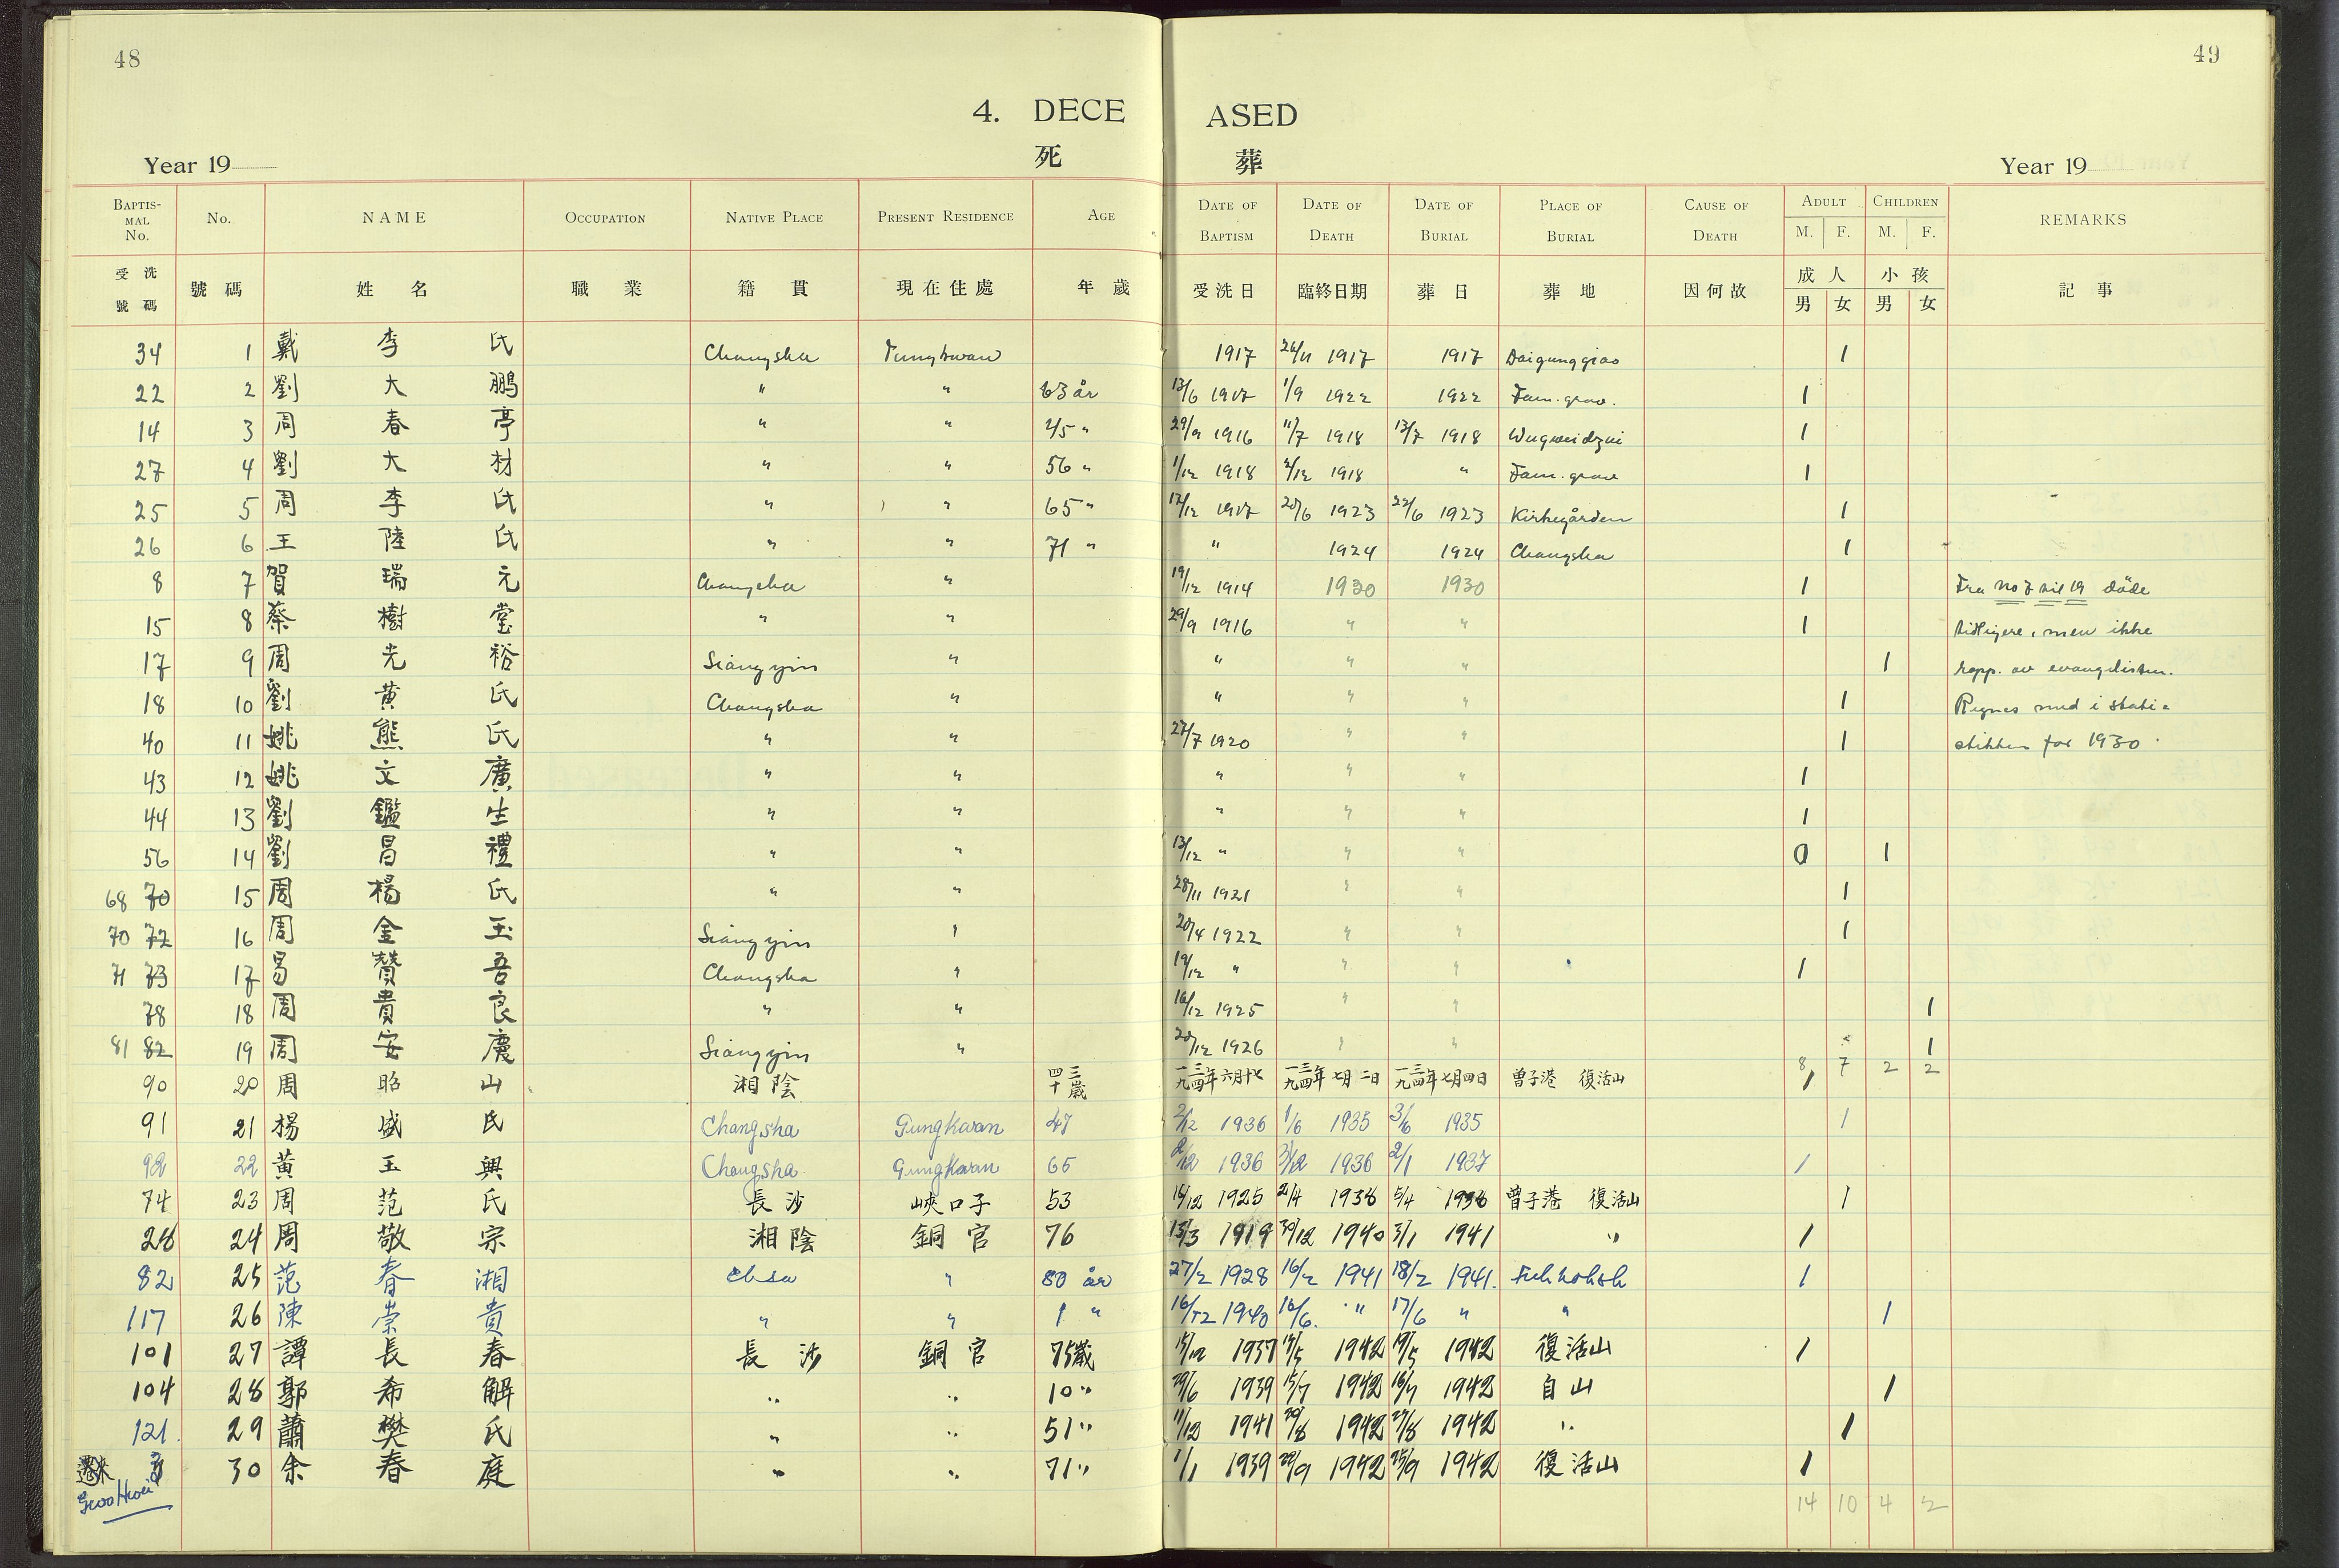 48
49
4. DECEASED
死 葬
Year 19
Year 19
BAPTISMAL No. No. NAME OCCUPATION NATIVE PLACE PRESENT RESIDENCE AGE DATE OF BAPTISM DATE OF DEATH DATE OF BURIAL PLACE OF BURIAL CAUSE OF DEATH ADULT M. F. CHILDREN M. F. REMARKS
受洗號碼 號碼 姓名 職業 籍貫 現在住處 年歲 受洗日 臨終日期 葬日 葬地 因何故 成人 男 女 小孩 男 女 記事
34 1 戴李氏 Changsha Tungkwan 1917 26/11 1917 1917 Daigungqiao 1
22 2 劉大鵬 " " 63 år 13/6 1917 1/9 1922 1922 Fam. grav. 1
14 3 周春亭 " " 45 " 29/9 1916 11/7 1918 13/7 1918 Wugweidzui 1
27 4 劉大材 " " 56 " 1/12 1918 2/12 1918 " Fam. grav 1
25 5 周李氏 " " 65 " 17/12 1917 20/6 1923 22/6 1923 Kirkegården 1
26 6 王陸氏 " " 71 " " 1924 1924 Changsha 1
8 7 賀瑞元 Changsha " 19/12 1914 1930 1930 1 Fra No 7 til 19 döde
15 8 蔡樹堂 " " 29/9 1916 " " 1 tidligere, men ikke
17 9 周光裕 Siangyin " " " " 1 rapp. av evangelisten.
18 10 劉黃氏 Changsha " " " " 1 Regnes med i stati=
40 11 姚熊氏 " " 27/7 1920 " " 1 stikken for 1930.
43 12 姚文廣 " " " " " 1
44 13 劉鑑生 " " " " " 1
56 14 劉昌禮 " " 13/12 " " " 0 1
68 70 15 周楊氏 " " 28/11 1921 " " 1
70 72 16 周金玉 Siangyin " 20/4 1922 " " 1
71 73 17 易贊吾 Changsha " 19/12 " " " 1
78 18 周貴良 " " 16/12 1925 " " 1
81 82 19 周安慶 Siangyin " 20/12 1926 " " 1
8 7 2 2
90 20 周昭山 湘陰 四十三歲 一九三四年六月十七 一九三四年七月二日 一九三四年七月四日 曾子港 復活山 1
91 21 楊盛氏 Changsha Gungkwan 47 2/12 1936 1/6 1935 3/6 1935 1
92 22 黃玉興 Changsha Gungkwan 65 2/12 1936 31/12 1936 2/1 1937 1
74 23 周范氏 長沙 峽口子 53 16/12 1925 2/4 1938 5/4 1938 曾子港 復活山 1
28 24 周敬宗 湘陰 銅官 76 15/3 1919 30/12 1940 3/1 1941 " 1
82 25 范春湘 Chsa " 80 år 27/2 1928 16/2 1941 18/2 1941. Fuhhohsh 1
117 26 陳崇貴 " " 1 " 16/12 1940 16/6. " 17/6 " " 1
101 27 譚長春 長沙 銅官 75歲 15/12 1937 17/5 1942 19/5 1942 復活山 1
104 28 郭希解 " " 10 " 29/6 1939 15/7 1942 16/7 1942 自山 1
121. 29 蕭樊氏 " " 51 " 11/12 1941 26/8 1942 27/8 1942 " 1
30 余春庭 " " 71 " 1/1 1939 22/9 1942 25/9 1942 復活山 1
14 10 4 2